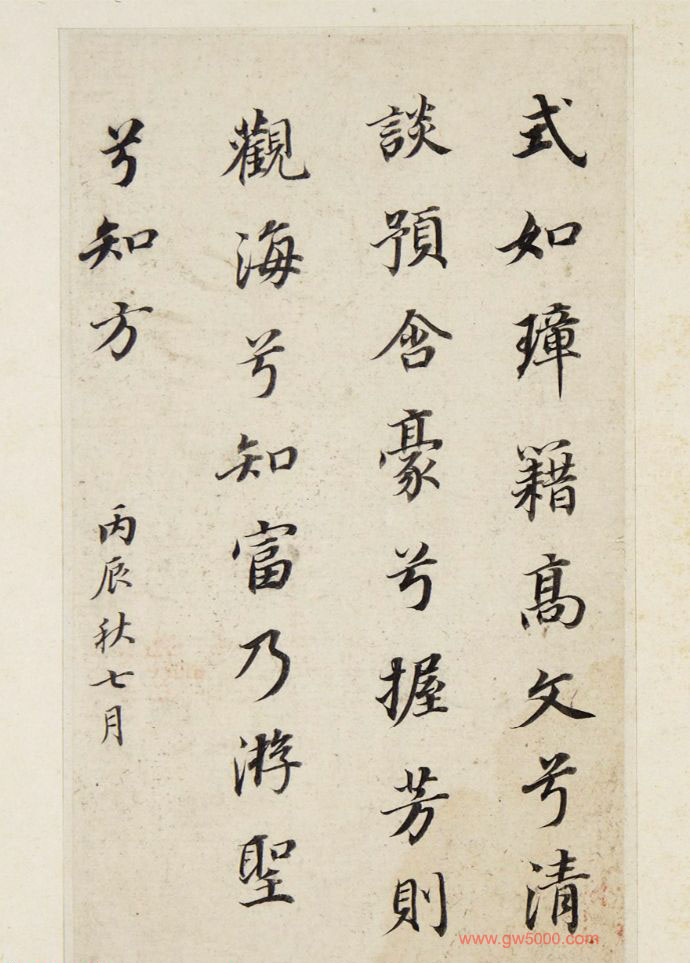 式如璋籍高文兮清
談預含豪兮握芳則
觀海兮知富乃游聖
兮知方
丙辰秋七月
www.gw5000.com